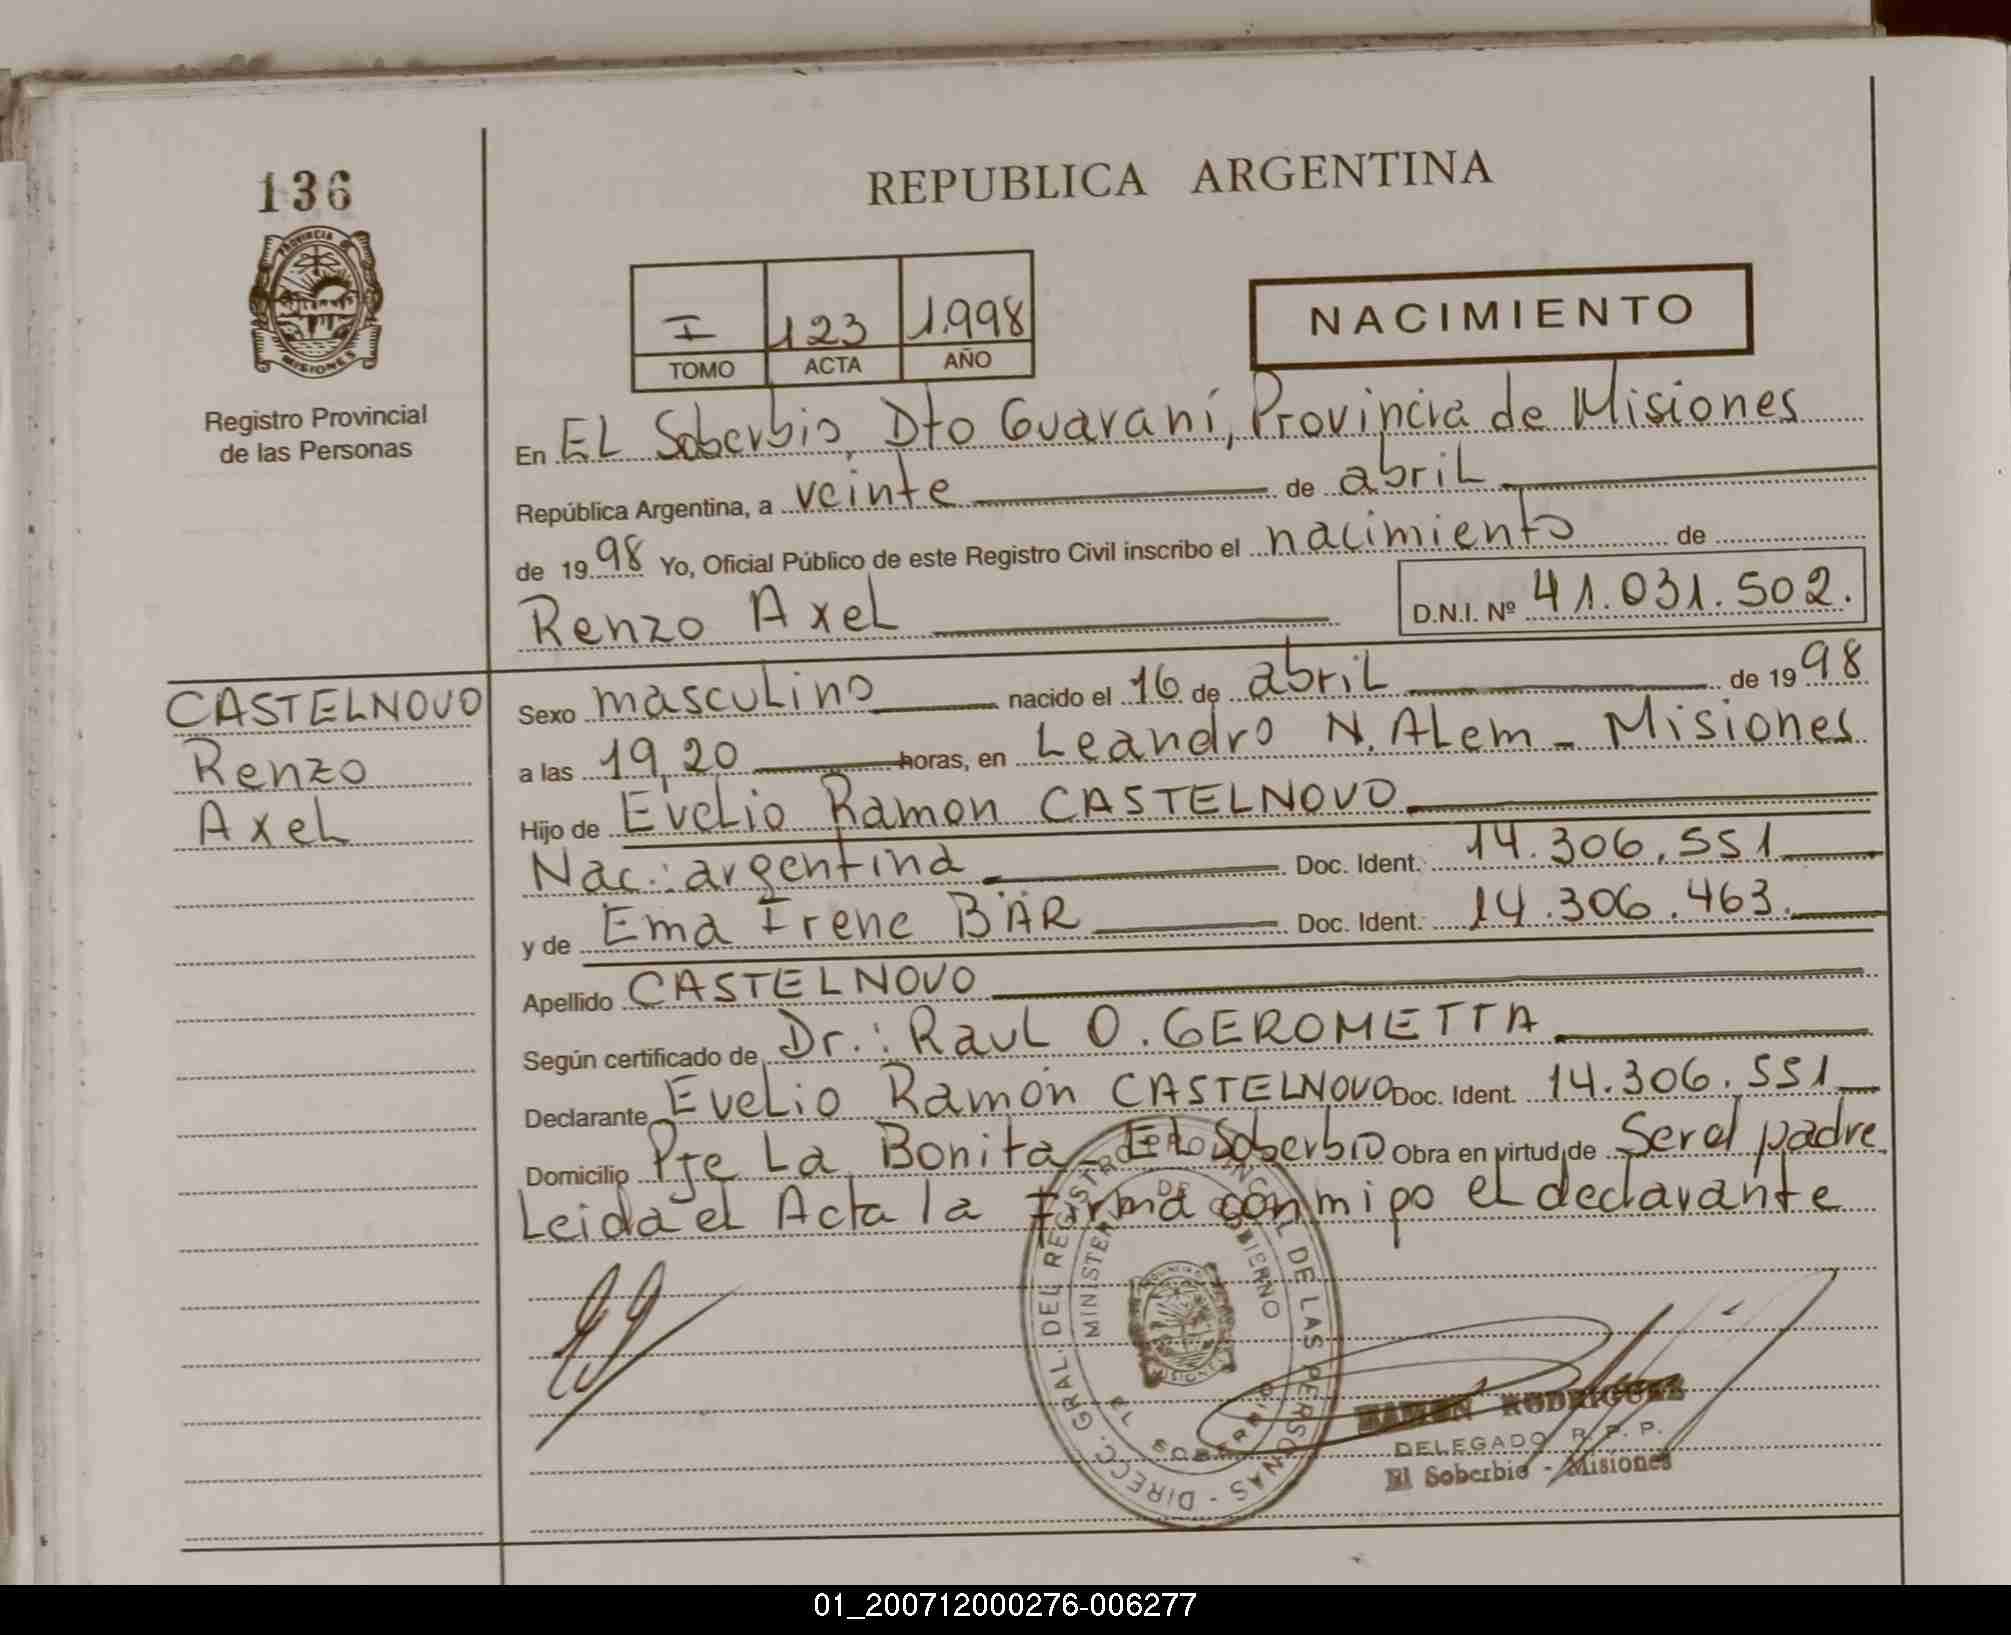 136
PROVINCIA DE
MISIONES
Registro Provincial
de las Personas
REPUBLICA ARGENTINA
I 123 1.998
TOMO ACTA AÑO
NACIMIENTO
En EL Soberbio, Dto Guaraní, Provincia de Misiones
República Argentina, a veinte de abril
de 1998 Yo, Oficial Público de este Registro Civil inscribo el nacimiento de
Renzo Axel D.N.I. Nº 41.031.502.
CASTELNOVO
Renzo
Axel
Sexo masculino nacido el 16 de abril de 1998
a las 19,20 horas, en Leandro N. Alem - Misiones
Hijo de Evelio Ramon CASTELNOVO
Nac.: argentina Doc. Ident. 14.306.551
y de Ema Irene BÄR Doc. Ident. 14.306.463.
Apellido CASTELNOVO
Según certificado de Dr.: Raul O. GEROMETTA
Declarante Evelio Ramón CASTELNOVO Doc. Ident. 14.306.551
Domicilio Pje La Bonita - El Soberbio Obra en virtud de Ser el padre
Leida el Acta la firma conmigo el declarante
DIREC. GRAL. DEL REGISTRO PROVINCIAL DE LAS PERSONAS
MINISTERIO DE GOBIERNO
EL SOBERBIO
RAMON RODRIGUEZ
DELEGADO R. P. P.
El Soberbio - Misiones
01_200712000276-006277